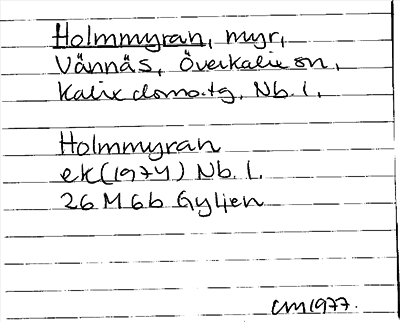 Holmmyran, myr,
Vännäs, Överkalix sn,
Kalix doms.tg, Nb. l.
Holmmyran
ek(1974) Nb. l.
26 M 6b Gyljen
CM1977.